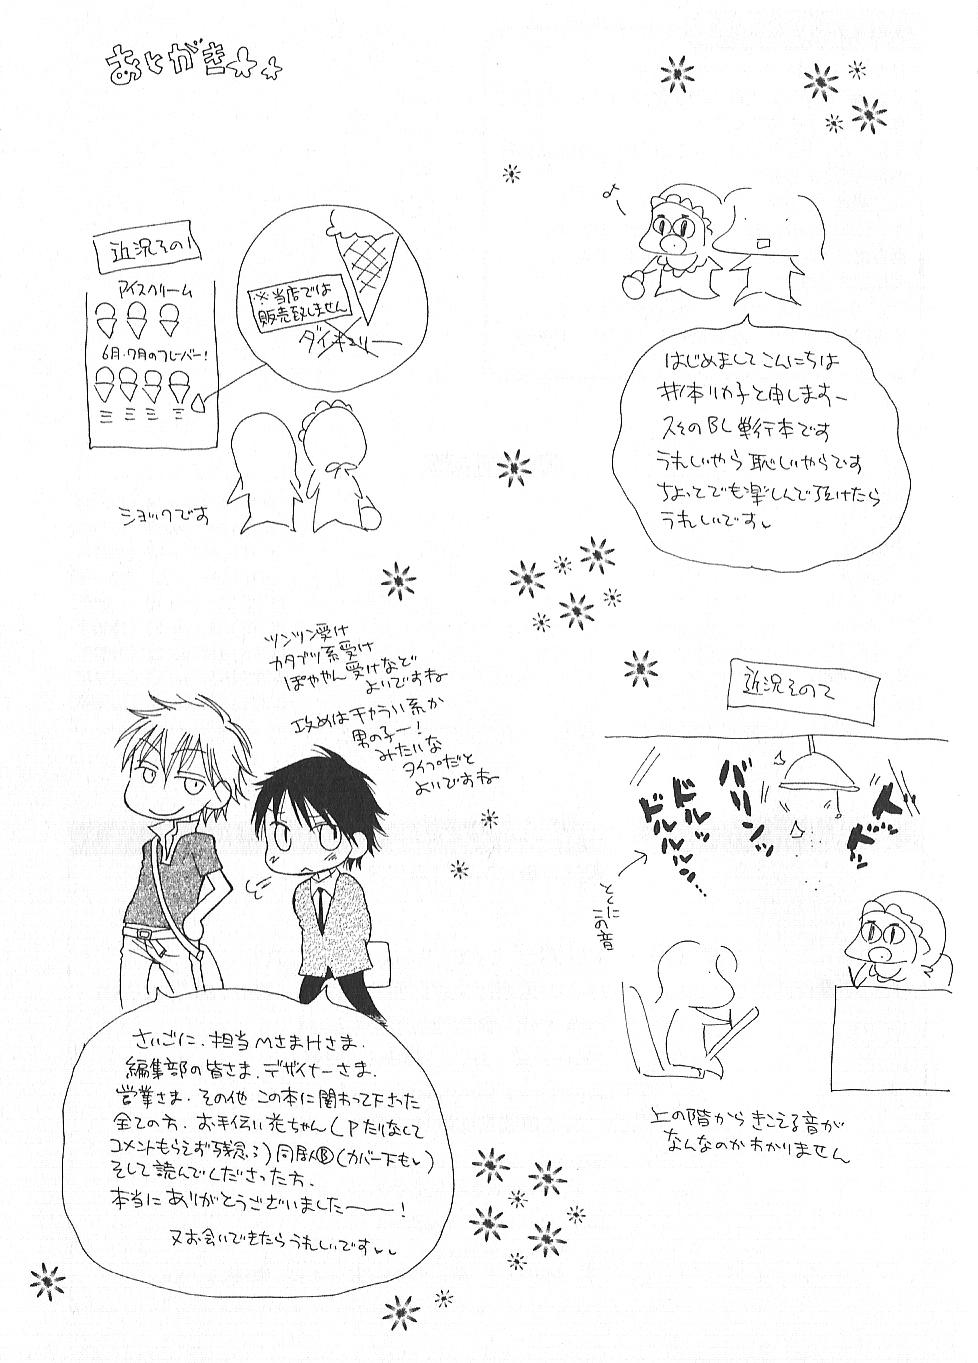 あとがき
よ
はじめましてこんにちは
井本リカ子と申しますー
スその BL 単行本です
うれしいやら恥しいやらです
ちょっとでも楽しんで頂けたら
うれしいです
近況その1
アイスクリーム
6月・7月のフレーバー!
※当店では
販売致しません
ダイキュリー
ショックです
近況その2
バリンッ
ドルッ
ドルルルン…
ドドッ
とくに
この音
上の階からきこえる音が
なんなのかわかりません
ツンツン受け
カタブツ系受け
ぽややん受けなど
よいですね
攻めはチャラい系か
男の子ー!
みたいな
タイプだと
よいですね
さいごに、担当MさまHさま、
編集部の皆さま、デザイナーさま、
営業さま、その他 この本に関わって下さった
全ての方、お手伝い花ちゃん(Pたりなくて
コメントもらえず残念)同居人Ⓑ(カバー下も)
そして読んでくださった方、
本当にありがとうございました〜〜!
又お会いできたらうれしいです